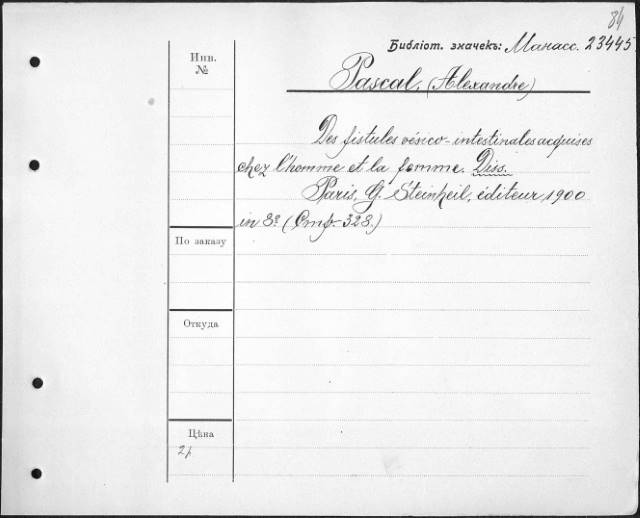 84
Библіот. значекъ: Манасс. 23445
Инв.
№
Pascal, (Alexandre)
Des fistules vésico-intestinales acquises
chez l'homme et la femme. Diss.
Paris, G. Steinheil, éditeur, 1900
in 8º (Стр. 328.)
По заказу
Откуда
Цѣна
2р